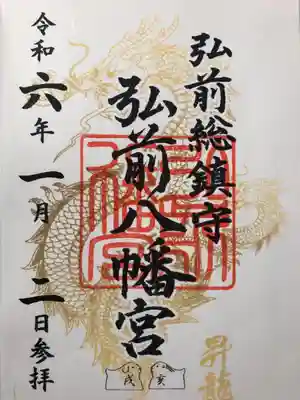 弘前総鎮守
弘前八幡宮
令和六年一月二日参拝
昇龍
戌
亥